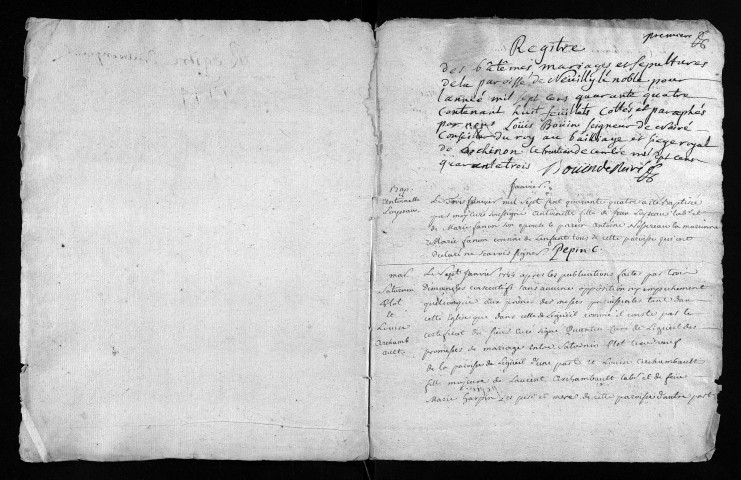 premier
Registre
des bâtêmes, mariages et sepultures
de la paroisse de Neuilly le noble pour
l'année mil sept cens quarante quatre
contenant huit feuillets cottés et paraphés
par nous Louis Bouin seigneur de
Conseiller du roy au bailliage et siege royal
de Chinon le de mil sept cens
quarante trois Bouin de
Janvier
Bap.
Antoinette
Loyseau
Le trois Janvier mil sept cent quarante quatre a été baptisée
par moy curé soussigné antoinette fille de Loyseau lab. et
de Marie fanon son epouse le parein antoine Loyseau la maraine
Marie fanon de l'enfant tous de cette paroisse qui ont
declaré ne scavoir signer. Pepin C.
mar.
Saturnin
Plot
et
Louise
Archamb
ault
Le sept Janvier 1744 apres les publications faites par trois
dimanches consecutifs sans aucunes opposition ny empeschement
quelconque aux prônes des messes paroissiales tant dans
cette Eglise que dans celle de Ligueil comme il conste par le
certificat du sieur curé signé curé de Ligueil des
promesses de mariage entre Saturnin Plot veuf
de la paroisse de Ligueil d'une part et Louise Archambault
fille majeure de Laurent Archambault lab. et de feue
Marie ses pere et mere de cette paroisse d'autre part